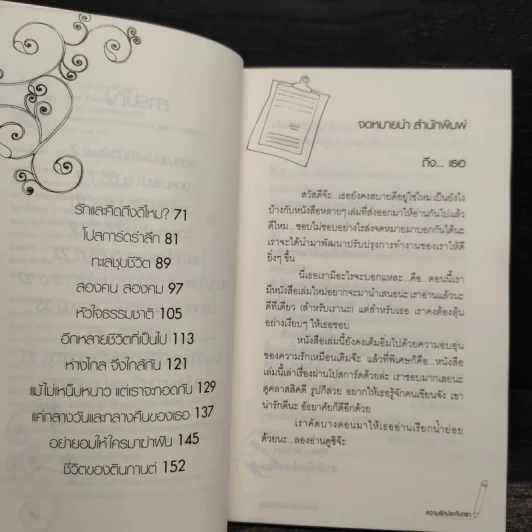 รักและคิดถึงดีไหม? 71
โปสการ์ดรำลึก 81
ทะเลชุบชีวิต 89
สองคน สองคม 97
หัวใจธรรมชาติ 105
อีกหลายชีวิตที่เป็นไป 113
ห่างไกล จึงใกล้กัน 121
แม้ไม่เหน็บหนาว แต่เราจะกอดกัน 129
แค่กลางวันและกลางคืนของเธอ 137
อย่ายอมให้ใครมาฆ่าฝัน 145
ชีวิตของดินกานต์ 152
จดหมายนำ สำนักพิมพ์
ถึง... เธอ
สวัสดีจ้ะ...เธอยังคงสบายดีอยู่ใช่ไหม เป็นยังไง
บ้างกับหนังสือหลายๆ เล่มที่ส่งออกมาให้อ่านกันไปแล้ว
ดีไหม... ชอบไม่ชอบอย่างไรส่งจดหมายมาบอกกันได้นะ
เราจะได้นำมาพัฒนาปรับปรุงการทำงานของเราให้ดี
ยิ่งๆ ขึ้น
นี่เธอเรามีอะไรจะบอกแหละ...คือ...ตอนนี้เรา
มีหนังสือเล่มใหม่อยากจะมานำเสนอน่ะ เราอ่านแล้วนะ
ดีทีเดียว (สำหรับเรานะ) แต่สำหรับเธอ เราคงต้องลุ้น
อย่างเงียบๆ ให้เธอชอบ
หนังสือเล่มนี้ยังคงเต็มอิ่มไปด้วยความอบอุ่น
ของความรักเหมือนเดิมจ้ะ แล้วที่พิเศษก็คือ...หนังสือ
เล่มนี้เล่าเรื่องผ่านโปสการ์ดด้วยล่ะ เราชอบมากเลยนะ
ดูคลาสสิคดี รูปก็สวย อยากให้เธอรู้จักคนเขียนจัง เขา
น่ารักดีนะ อัธยาศัยก็ดีอีกด้วย
เราคัดบางตอนมาให้เธออ่านเรียกน้ำย่อย
ด้วยนะ...ลองอ่านดูซิจ๊ะ